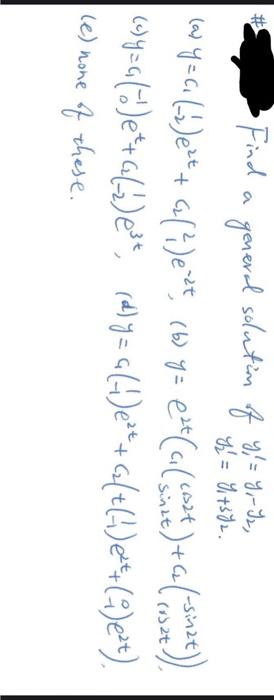 # Find a general solution of y₁' = y₁ - y₂,
y₂' = y₁ + 3y₂.
(a) y = c₁(1 -2)e^{2t} + c₂(2 1)e^{-2t}, (b) y = e^{2t}(c₁(cos2t sin2t) + c₂(-sin2t cos2t)),
(c) y = c₁(-1 0)e^{t} + c₂(1 -2)e^{3t}, (d) y = c₁(1 -1)e^{2t} + c₂(t(1 -1)e^{2t} + (0 -1)e^{2t}),
(e) none of these.